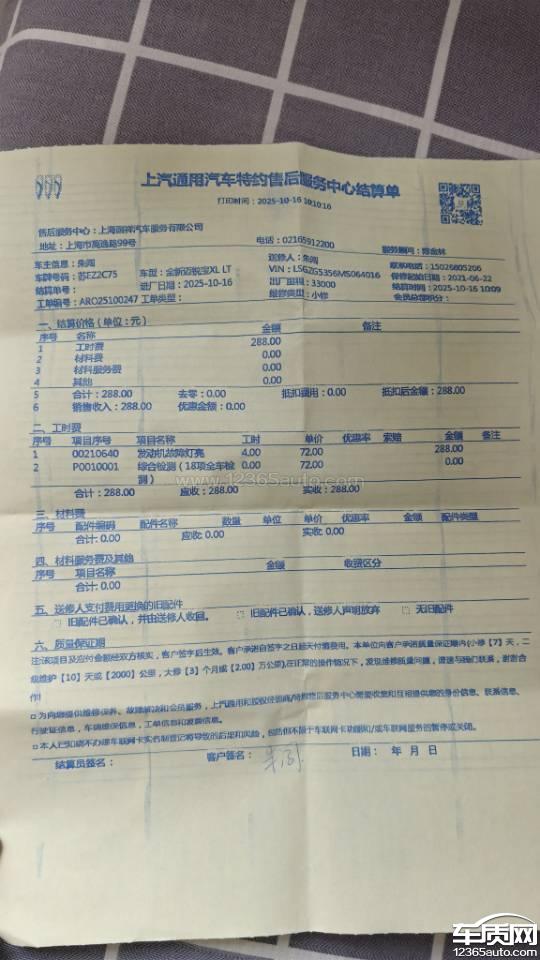 上汽通用汽车特约售后服务中心结算单
打印时间：2025-10-16 10:10:16
售后服务中心：上海 汽车服务有限公司
地址：上海市高逸路99号 电话：02165912200 服务顾问：
车主信息：朱 送修人：朱 联系电话：15026805206
车牌号码：苏EZ2C75 车型：全新迈锐宝XL LT VIN：LSGZG5356MS064016 保修起始日期：2021-06-22
结算单号： 进厂日期：2025-10-16 出厂里程：33000 结算时间：2025-10-16 10:09
工单编号：ARO25100247 工单类型： 维修类型：小修 会员总积分：
一、结算价格（单位：元）
序号 名称 金额 备注
1 工时费 288.00
2 材料费 0.00
3 材料服务费 0.00
4 其他 0.00
5 合计：288.00 去零：0.00 抵扣费用：0.00 抵扣后金额：288.00
6 销售收入：288.00 优惠金额：0.00
二、工时费
序号 项目序号 项目名称 工时 单价 优惠率 索赔 金额 备注
1 00210640 发动机故障灯亮 4.00 72.00 288.00
2 P0010001 综合检测（18项全车检测） 0.00 72.00 0.00
合计：288.00 应收：288.00 实收：288.00
www.12365auto.com
三、材料费
序号 配件编码 配件名称 数量 单位 单价 优惠率 金额 配件类型
合计：0.00 应收：0.00 实收：0.00
四、材料服务费及其他
序号 项目名称 金额 收费区分
合计：0.00
五、送修人支付费用更换的旧配件
旧配件已确认，并由送修人收回。 旧配件已确认，送修人声明放弃 无旧配件
六、质量保证期
注：该项目及应付金额经双方核实，客户签字后生效。客户承诺自签字之日起支付清费用。本单位向客户承诺质量保证期为（小修【7】天，二
级维护【10】天或【2000】公里，大修【3】个月或【2.00】万公里），在正常的操作情况下，发现维修质量问题，请速与我们联系，谢谢合
作！
□ 为向您提供维修保养、故障解决和会员服务，上汽通用和授权经销商/特约售后服务中心需要收集和互相提供您的身份信息、联系信息、
行驶证信息，车辆维保信息，工单信息和发票信息。
□ 本人已知晓不办理车联网卡实名制登记将导致的后果和风险，包括但不限于车联网卡功能和/或车联网服务的暂停或关闭。
结算员签名： 客户签名： 日期： 年 月 日
车质网
12365auto.com